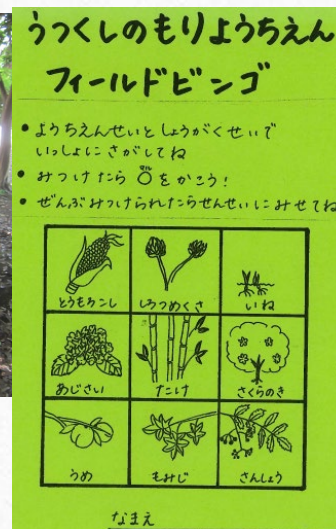 うつくしのもりようちえん
フィールドビンゴ
・ようちえんせいとしょうがくせいで
いっしょにさがしてね
・みつけたら〇をかこう!
まる
・ぜんぶみつけられたらせんせいにみせてね
とうもろこし しろつめくさ いね
あじさい たけ さくらのき
うめ もみじ さんしょう
なまえ